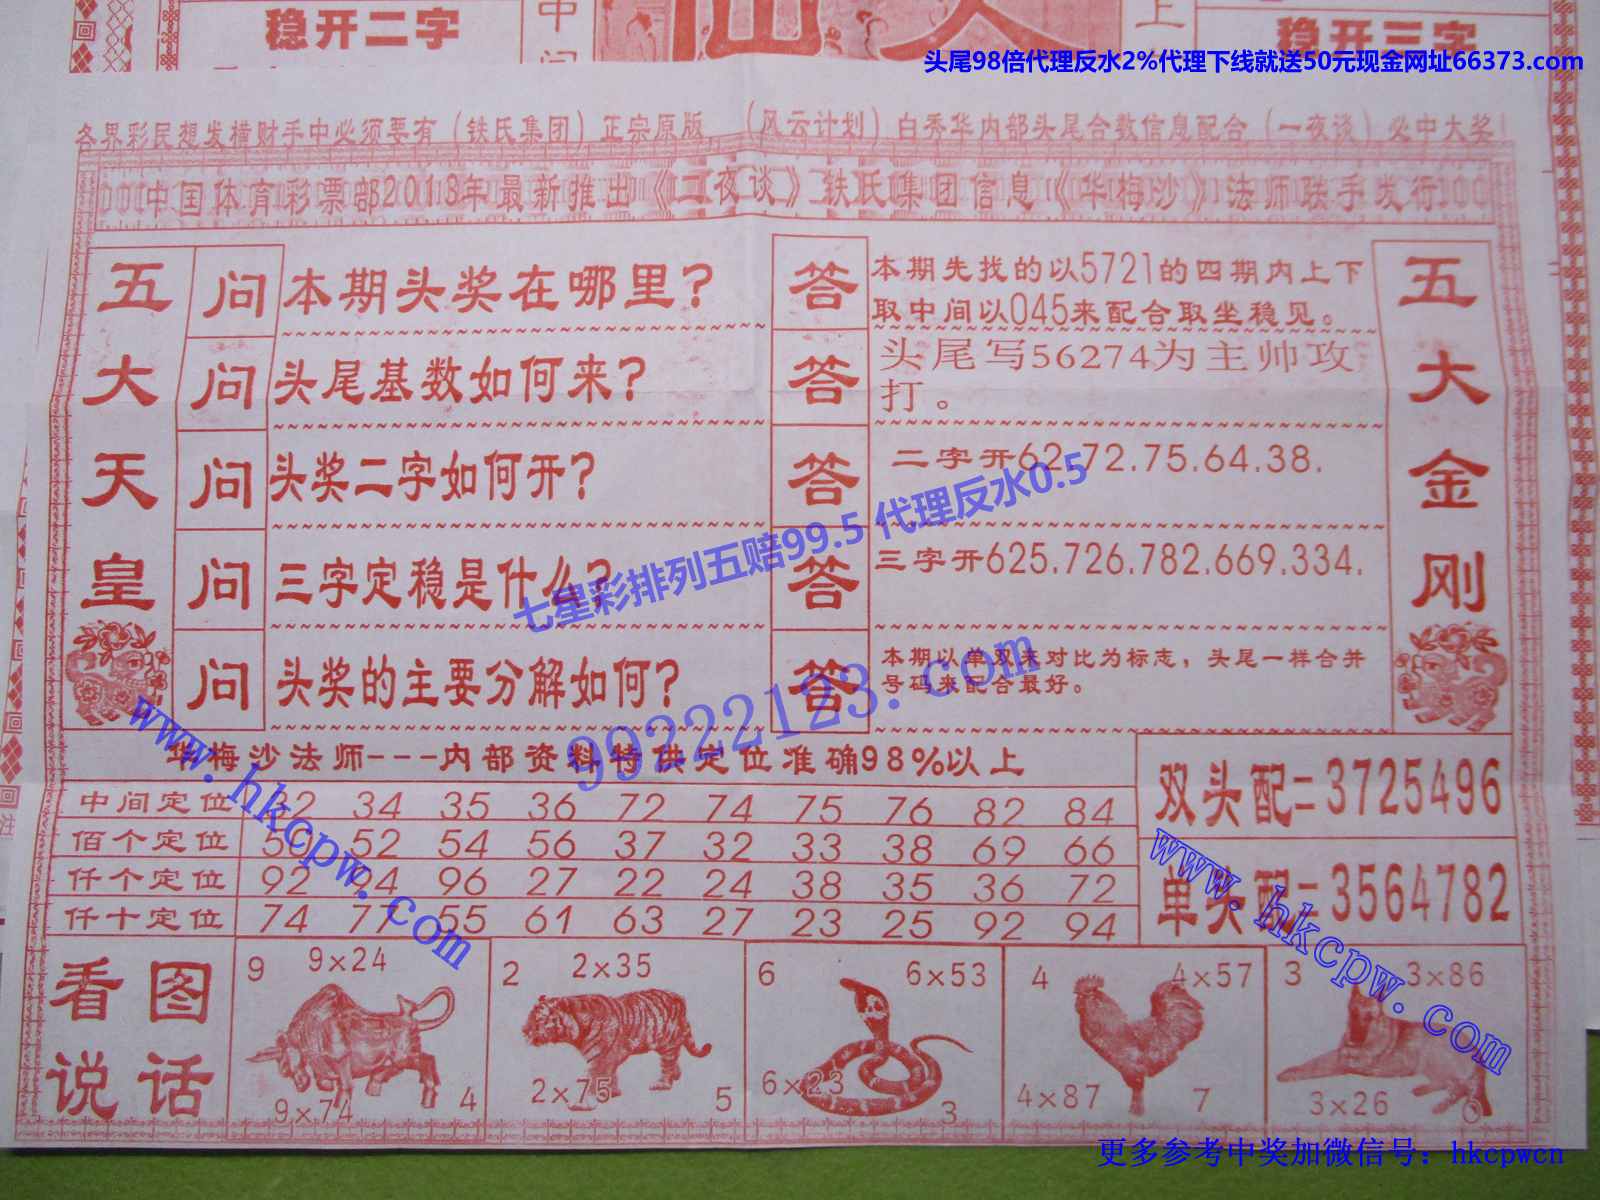 稳开二字
中
上
稳开三字
头尾98倍代理反水2%代理下线就送50元现金网址66373.com
各界彩民想发横财手中必须要有（铁氏集团）正宗原版，（风云计划）白秀华内部头尾合数信息配合（一夜谈）必中大奖！
中国体育彩票部2013年最新推出《二夜谈》铁氏集团信息《华梅沙》法师联手发行
五大天皇
问 本期头奖在哪里?
答 本期先找的以5721的四期内上下
取中间以045来配合取坐稳见。
五大金刚
问 头尾基数如何来?
答 头尾写56274为主帅攻
打。
问 头奖二字如何开?
答 二字开62.72.75.64.38.
问 三字定稳是什么?
答 三字开625.726.782.669.334.
问 头奖的主要分解如何?
答 本期以单双来对比为标志，头尾一样合并
号码来配合最好。
七星彩排列五赔99.5 代理反水0.5
99222123.com
华梅沙法师---内部资料特供定位准确98%以上
中间定位 32 34 35 36 72 74 75 76 82 84
佰个定位 52 54 56 37 32 33 38 69 66
仟个定位 92 94 96 27 22 24 38 35 36 72
仟十定位 74 77 55 61 63 27 23 25 92 94
双头配=3725496
单头配=3564782
www.hkcpw.com
www.hkcpw.com
看图
说话
9 9×24
9×74 4
2 2×35
2×75 5
6 6×53
6×23 3
4 4×57
4×87 7
3 3×86
3×26 0
更多参考中奖加微信号：hkcpwcn